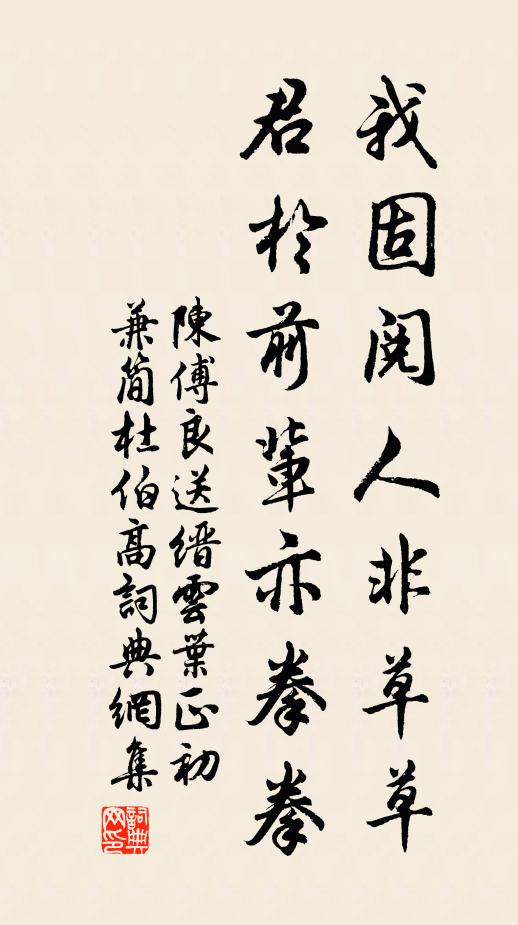 我固閱人非草草
君於前輩亦拳拳
陳傅良送缙雲葉正初
兼簡杜伯高詞典網集
詞典
网印